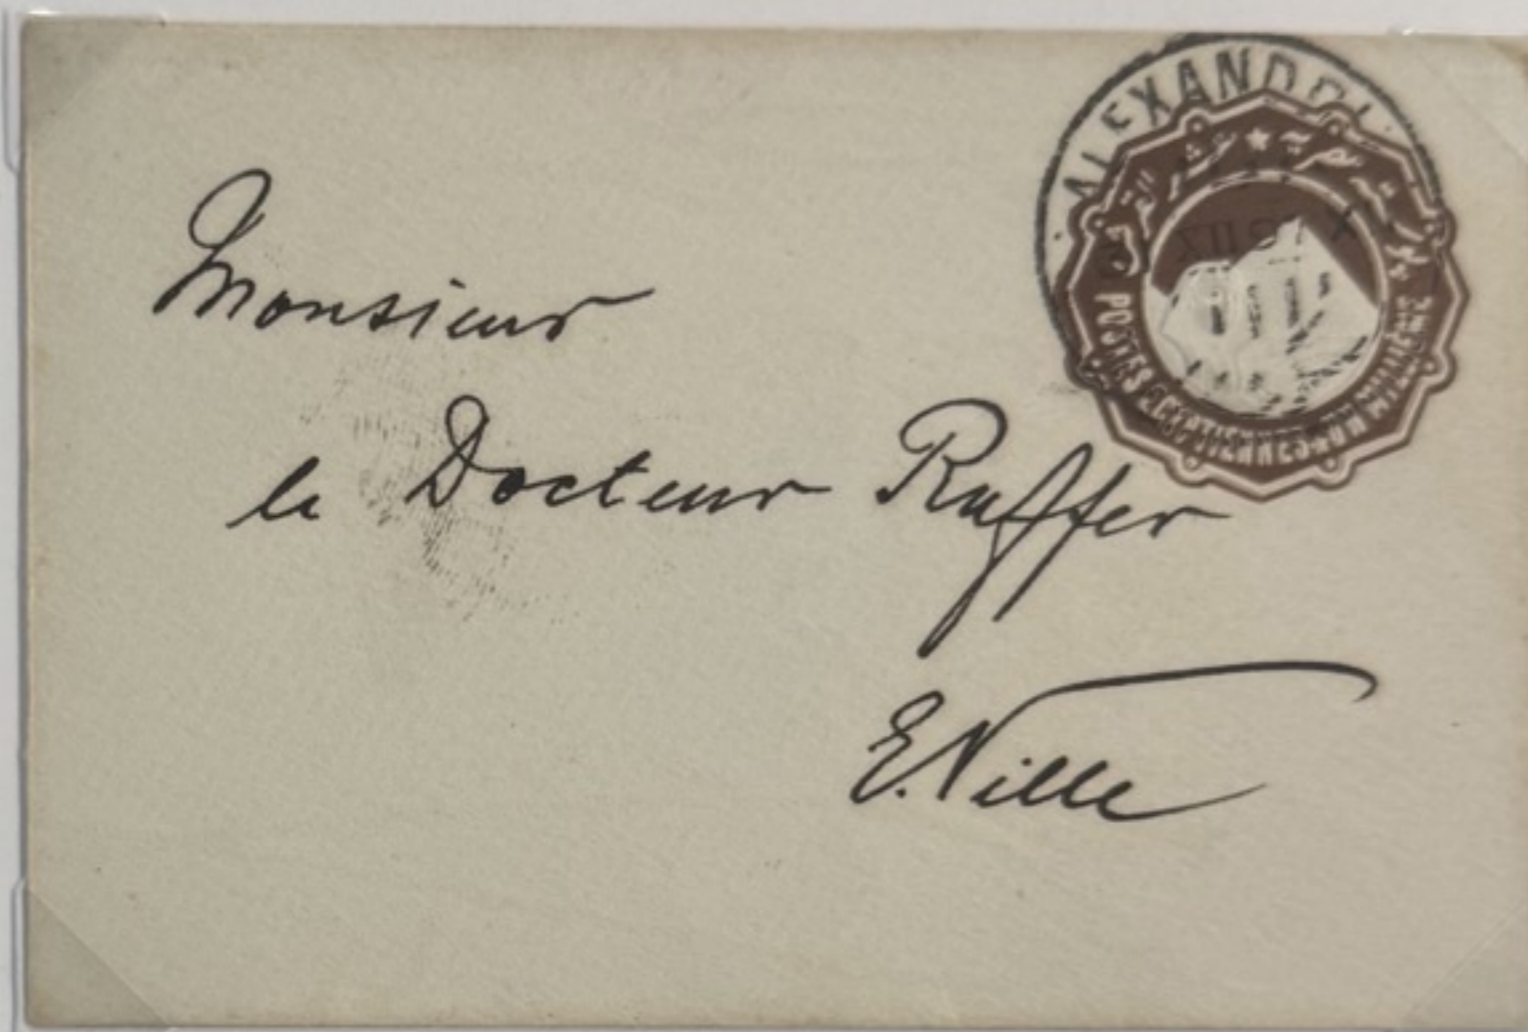 ALEXANDRI
POSTES EGYPTIENNES UN MILLIEME
Monsieur
le Docteur Ruffer
E. Ville